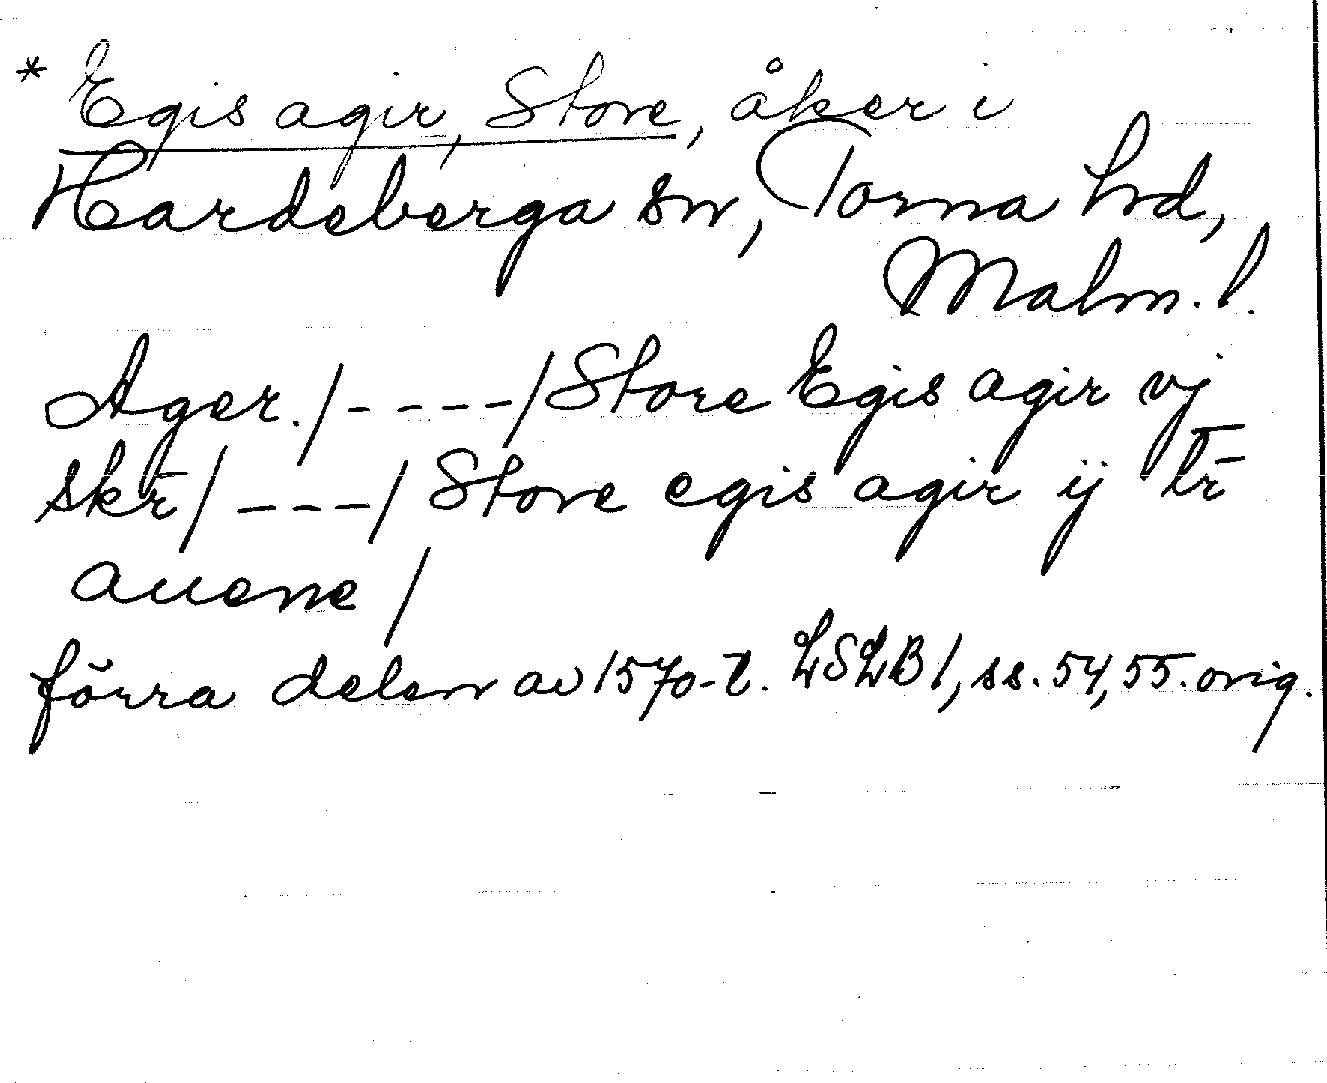 * Egis agir, Store, åker i
Hardeberga sn, Torna hd,
Malm. l.
Ager. /----/ Store Egis agir vj
skr̄ /---/ Store egis agir ij tr̄
auene /
förra delen av 1570-t. LSLB 1, ss. 54, 55. orig.